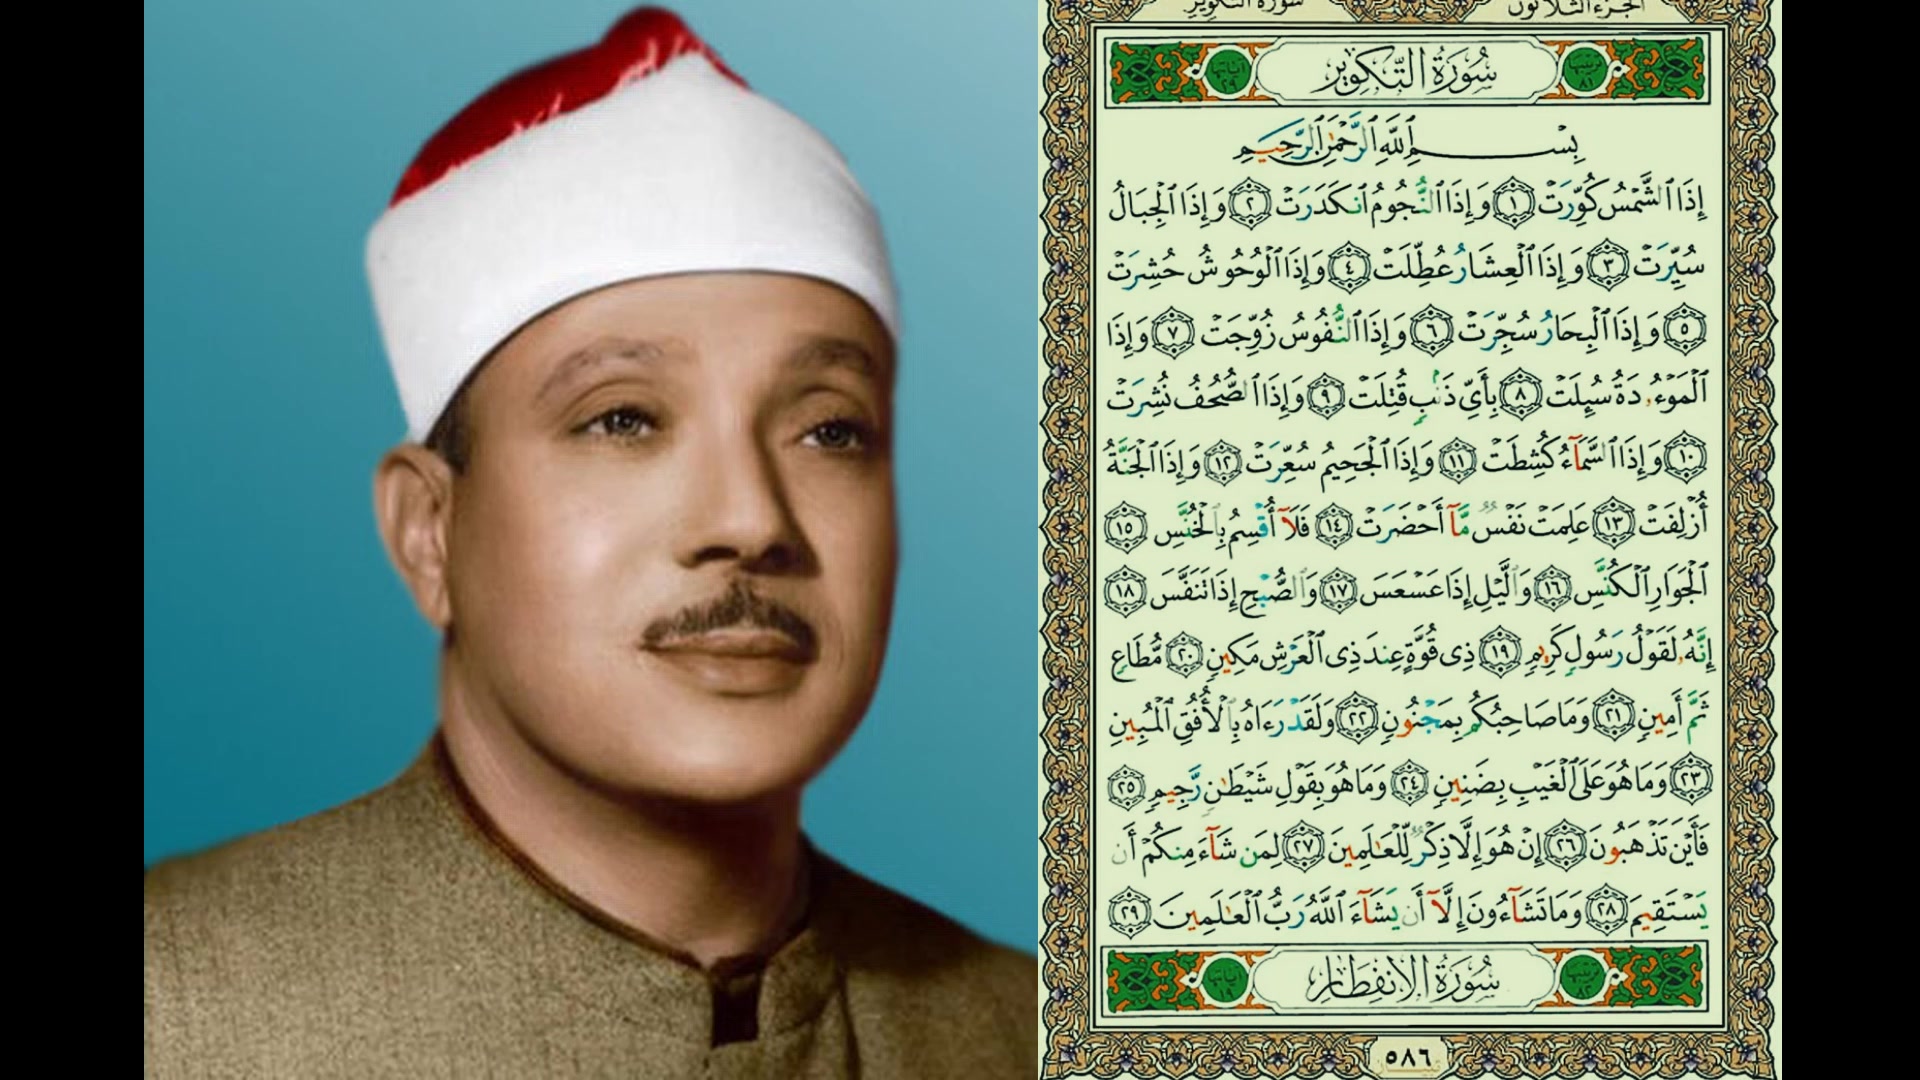 الجزء الثلاثون
سورة التكوير
سُورَةُ التَّكْوِيرِ
ترتيبها ٨١
آياتها ٢٩
بِسْمِ ٱللَّهِ ٱلرَّحْمَٰنِ ٱلرَّحِيمِ
إِذَا ٱلشَّمْسُ كُوِّرَتْ ١ وَإِذَا ٱلنُّجُومُ ٱنكَدَرَتْ ٢ وَإِذَا ٱلْجِبَالُ
سُيِّرَتْ ٣ وَإِذَا ٱلْعِشَارُ عُطِّلَتْ ٤ وَإِذَا ٱلْوُحُوشُ حُشِرَتْ
٥ وَإِذَا ٱلْبِحَارُ سُجِّرَتْ ٦ وَإِذَا ٱلنُّفُوسُ زُوِّجَتْ ٧ وَإِذَا
ٱلْمَوْءُۥدَةُ سُئِلَتْ ٨ بِأَيِّ ذَنۢبٍ قُتِلَتْ ٩ وَإِذَا ٱلصُّحُفُ نُشِرَتْ
١٠ وَإِذَا ٱلسَّمَآءُ كُشِطَتْ ١١ وَإِذَا ٱلْجَحِيمُ سُعِّرَتْ ١٢ وَإِذَا ٱلْجَنَّةُ
أُزْلِفَتْ ١٣ عَلِمَتْ نَفْسٌ مَّآ أَحْضَرَتْ ١٤ فَلَآ أُقْسِمُ بِٱلْخُنَّسِ ١٥
ٱلْجَوَارِ ٱلْكُنَّسِ ١٦ وَٱلَّيْلِ إِذَا عَسْعَسَ ١٧ وَٱلصُّبْحِ إِذَا تَنَفَّسَ ١٨
إِنَّهُۥ لَقَوْلُ رَسُولٍ كَرِيمٍ ١٩ ذِى قُوَّةٍ عِندَ ذِى ٱلْعَرْشِ مَكِينٍ ٢٠ مُّطَاعٍ
ثَمَّ أَمِينٍ ٢١ وَمَا صَاحِبُكُم بِمَجْنُونٍ ٢٢ وَلَقَدْ رَءَاهُ بِٱلْأُفُقِ ٱلْمُبِينِ
٢٣ وَمَا هُوَ عَلَى ٱلْغَيْبِ بِضَنِينٍ ٢٤ وَمَا هُوَ بِقَوْلِ شَيْطَٰنٍ رَّجِيمٍ ٢٥
فَأَيْنَ تَذْهَبُونَ ٢٦ إِنْ هُوَ إِلَّا ذِكْرٌ لِّلْعَٰلَمِينَ ٢٧ لِمَن شَآءَ مِنكُمْ أَن
يَسْتَقِيمَ ٢٨ وَمَا تَشَآءُونَ إِلَّآ أَن يَشَآءَ ٱللَّهُ رَبُّ ٱلْعَٰلَمِينَ ٢٩
سُورَةُ الِانفِطَارِ
ترتيبها ٨٢
آياتها ١٩
٥٨٦